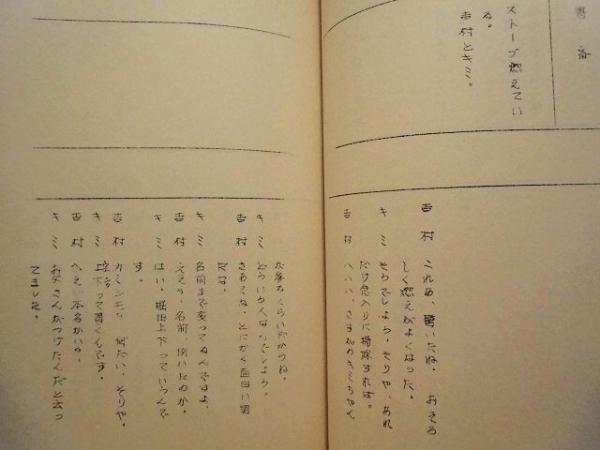 書斎
ストーブ燃えてい
る。
吉村とキミ。
吉村 これあ、驚いたね。おそろ
しく燃えがよくなった。
キミ そりでしょう、そりや、あれ
だけ念入りに掃除すれば。
吉村 ハハハ、さすがのキミちゃん
が参ったくらいだからね。
キミ どういう人なんでしょう。
吉村 さあてね、とにかく面白い男
だな。
キミ 名前まで変ってるんですよ。
吉村 ええっ、名前、聞いたのか。
キミ はい、堀田上下っていうんで
す。
吉村 カミシモ? 何だい、そりや。
キミ 上下って書くんです。
吉村 へえ、本名かいの。
キミ お父さんがつけたんだと云っ
てました。